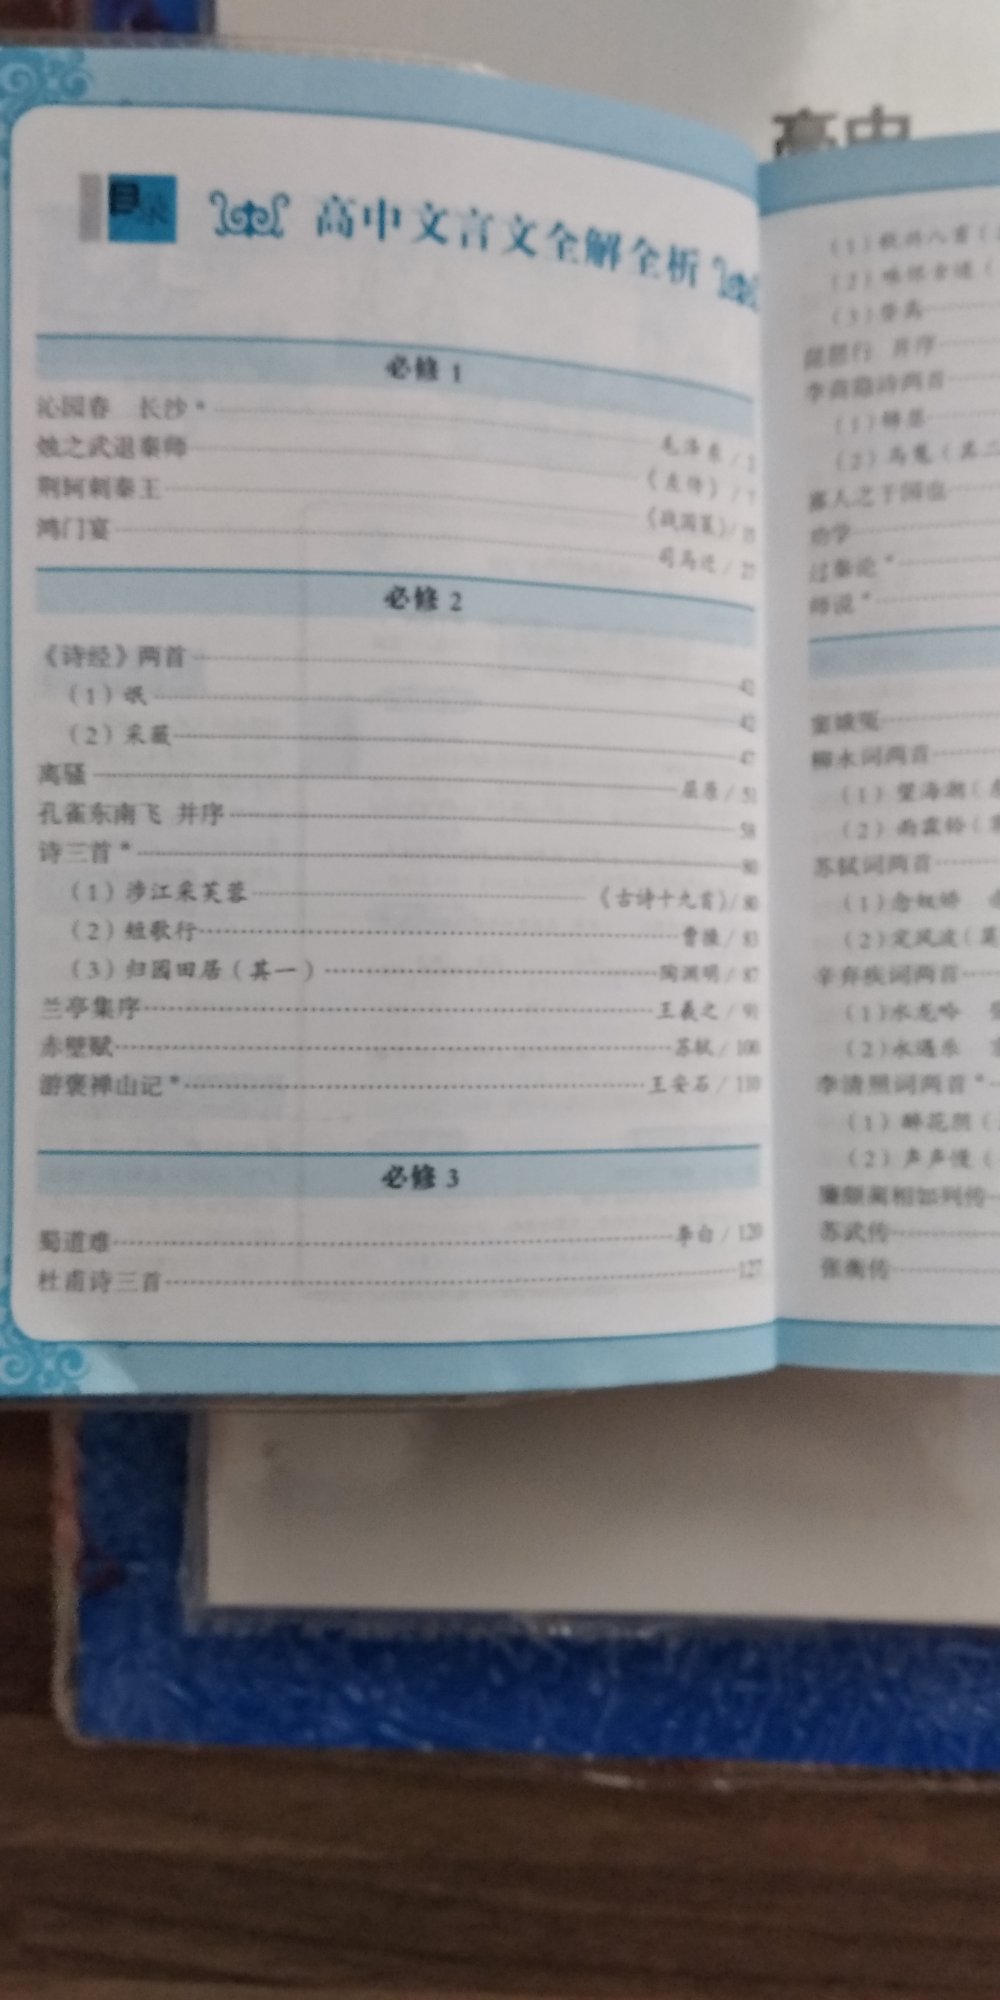 高中
目录 高中文言文全解全析
必修 1
沁园春 长沙* 毛泽东 /
烛之武退秦师 《左传》 /
荆轲刺秦王 《战国策》/
鸿门宴 司马迁 / 27
必修 2
《诗经》两首 42
（1）氓 42
（2）采薇 47
离骚 屈原 / 51
孔雀东南飞 并序 58
诗三首* 80
（1）涉江采芙蓉 《古诗十九首》/ 80
（2）短歌行 曹操 / 83
（3）归园田居（其一） 陶渊明 / 87
兰亭集序 王羲之 / 91
赤壁赋 苏轼 / 100
游褒禅山记* 王安石 / 110
必修 3
蜀道难 李白 / 120
杜甫诗三首 127
（1）秋兴八首（
（2）咏怀古迹（
（3）登高
琵琶行 并序
李商隐诗两首
（1）锦瑟
（2）马嵬（其二
寡人之于国也
劝学
过秦论*
师说*
窦娥冤
柳永词两首
（1）望海潮（东
（2）雨霖铃（寒
苏轼词两首
（1）念奴娇 赤
（2）定风波（莫
辛弃疾词两首
（1）水龙吟 登
（2）永遇乐 京
李清照词两首*
（1）醉花阴（
（2）声声慢（
廉颇蔺相如列传
苏武传
张衡传